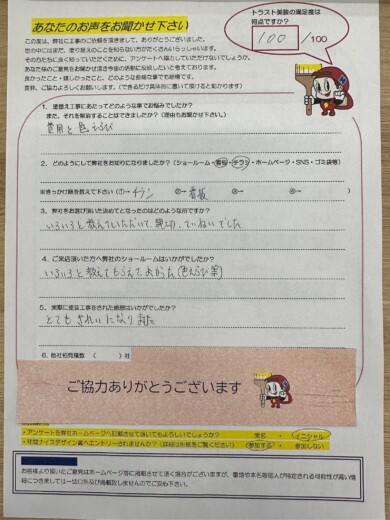 あなたのお声をお聞かせ下さい
トラスト美装の満足度は
何点ですか?
100 /100
この度は、弊社に工事のご依頼を頂きまして、ありがとうございました。
世の中にはまだ、塗り替えのことを知らない方がたくさんいらっしゃいます。
その方たちに良く知っていただくために、アンケートへ協力していただけないでしょうか。
あなた様のご意見をお聞かせ頂き今後の活動に反映したいと考えております。
良かったこと・嬉しかったこと、どのような些細な事でも結構です。
是非、ご協力よろしくお願いします。(できるだけ具体的に書いて頂けると助かります)
1. 塗替え工事にあたってどのような事でお悩みでしたか?
また、それを解消することはできましたか?(理由もお聞かせ下さい。)
費用と色えらび
2. どのようにして弊社をお知りになりましたか?(ショールーム・看板・チラシ・ホームページ・SNS・ゴミ袋等)
※きっかけ順を教えて下さい(①→ チラシ ②→ 看板 ③→ ④→ )
3. 弊社をお選び頂いた決めてとなったのはどのような所ですか?
いろいろと教えていただいて、親切、ていねいでした
4. ご来店頂いた方へ弊社のショールームはいかがでしたか?
いろいろと教えてもらえてよかった(色えらび等)
5. 実際に塗装工事をされた感想はいかがでしたか?
とてもきれいになりました
6. 他社相見積数 ( )社
ご協力ありがとうございます
・アンケートを弊社ホームページへ記載させて頂いてもよろしいでしょうか? 実名 ・ イニシャル
・年間ナイスデザイン賞へエントリーされませんか?(詳細は別紙をご覧ください) 参加する ・ 参加しない
お客様より頂いたご意見はホームページ等に掲載させて頂く場合がございますが、番地や本名等個人が特定される可能性が高い情
報につきましては一切公開及び掲載致しませんのでご安心下さい。